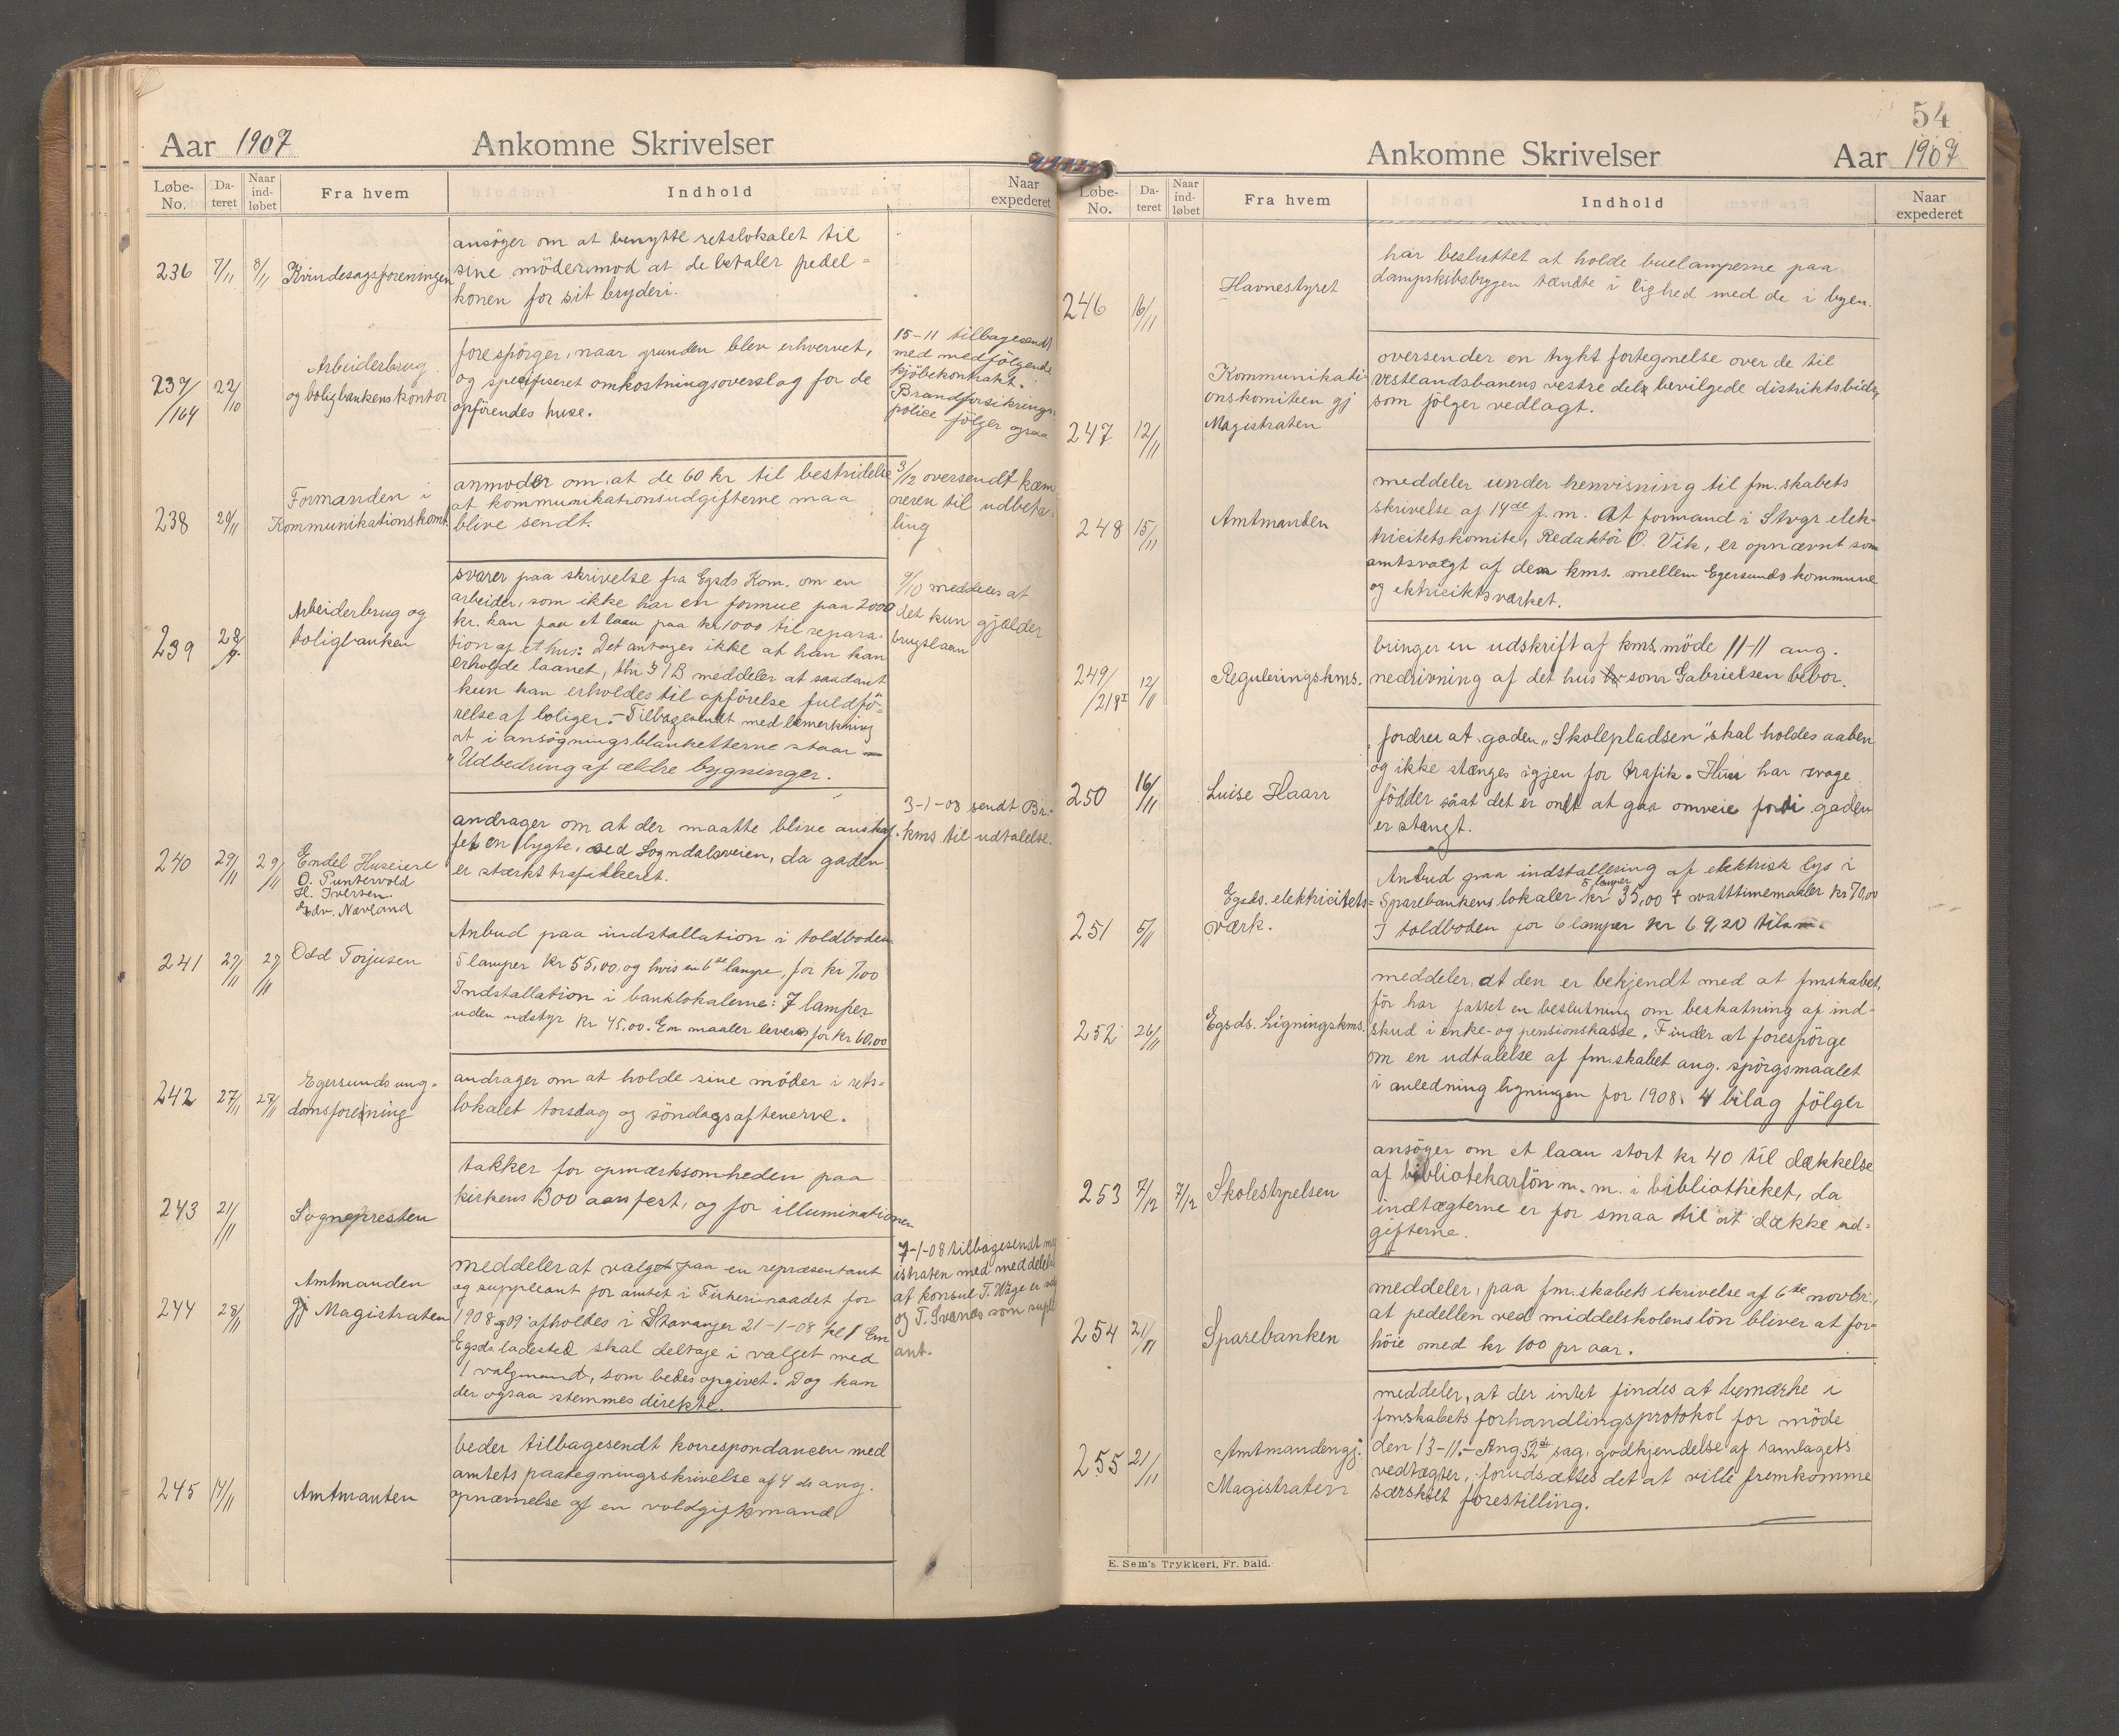 Aar 1907 Ankomne Skrivelser
Løbe-No. Dateret Naar indløbet Fra hvem Indhold Naar expederet
236 7/11 8/11 Kvindesagsforeningen
ansöger om at benytte retslokalet til
sine möder mod at de betaler pedel=
konen for sit bryderi.
237/164 22/10 Arbeiderbrug
og boligbankens kontor
forespörger, naar grunden blev erhvervet,
og specifiseret omkostningsoverslag for de
opförendes huse.
15-11 tilbagesendt
med medfölgende
kjöbekontrakt.
Brandforsikrings
police fölger ogsaa
238 20/11 Formanden i
Kommunikationskomt.
anmoder om, at de 60 kr til bestridelse
at kommunikationsudgifterne maa
blive sendt.
3/12 oversendt kæm
neren til udbeta-
ling
239 Arbeiderbrug og
boligbanken
svarer paa skrivelse fra Egsds Kom. om en
arbeider, som ikke har en formue paa 2000
kr. kan faa et laan paa kr 1000 til repara-
tion af et hus: Det antages ikke at han kan
erholde laanet, thi § 1 B meddeler at saadant
kun kan erholdes til opförelse fuldfö-
relse af boliger. - Tilbagesendt med bemerkning
at i ansögningsblanketterne staar -
"Udbedring af ældre bygninger.
9/10 meddeles at
det kun gjælder
brugslaan
240 29/11 29/11 Endel Huseiere
O. Puntervold
H. Iversen
Edv. Nævland
andrager om at der maatte blive anskaf-
fet en lygte, ved Sogndalsveien, da gaden
er stærkt trafikkeret.
3-1-08 sendt Br.-
kms til udtalelse.
241 27/11 27/11 Odd Torjusen
Anbud paa indstallation i toldboden
5 lamper kr 55,00, og hvis en 6te lampe, for kr 7,00
Indstallation i banklokalerne: 7 lamper
uden udstyr kr 45.00. En maaler leveres for kr 60,00
242 27/11 28/11 Egersunds ung-
domsforening
andrager om at holde sine möder i rets=
lokalet torsdag og söndagsaftenerne.
243 21/11 Sognepresten
takker for opmærksomheden paa
kirkens 300 aarsfest, og for illuminationen
244 28/11 Amtmanden
gj Magistraten
meddeler at valget paa en repræsentant
og suppleant for amtet i Fiskeriraadet for
1908 og 09 afholdes i Stavanger 21-1-08 kl 1 Em
Egsds ladested skal deltage i valget med
1 valgmand, som bedes opgivet. Dog kan
der ogsaa stemmes direkte.
7-1-08 tilbagesendt mag
istraten med meddelelse
at konsul T. Wage er valg
og T. Svanes som supl
ant.
245 14/11 Amtmanten
beder tilbagesendt korrespondancen med
amtets paategningsskrivelse af 4 ds ang.
opnævnelse af en voldgiftsmand
54
Ankomne Skrivelser Aar 1907
Løbe-No. Dateret Naar indløbet Fra hvem Indhold Naar expederet
246 16/11 Havnestyret
har besluttet at holde buelamperne paa
dampskibsbryggen tændte i lighed med de i byen.
247 12/11 Kommunikati
onskomiteen gj
Magistraten
oversender en trykt fortegnelse over de til
Vestlandsbanens vestre dele bevilgede distriktsbidr,
som fölger vedlagt.
248 15/11 Amtmanden
meddeler under henvisning til fm.skabets
skrivelse af 14de f. m. at formand i Stvgr elek-
tricitetskomite, Redaktör O. Vik, er opnævnt som
amtsvalgt af den kms. mellem Egersunds kommune
og ektricitetsværket.
249/218I 12/11 Reguleringskms.
bringer en udskrift af kms. möde 11-11 ang.
nedrivning af det hus som Gabrielsen bebor.
250 16/11 Luise Haarr
fordrer at gaden "Skolepladsen" skal holdes aaben
og ikke stænges igjen for trafik. Hun har svage
födder saat det er ondt at gaa omveie fordi gaden
er stængt.
251 5/11 Egsds. elektricitets=
værk.
Anbud paa indstallering af elektrisk lys i
5 lamper
Sparebankens lokaler kr 35,00 + watttimemaaler kr 70,00
I toldboden for 6 lamper kr 69,20
252 26/11 Egsds. Ligningskms.
meddeler, at den er bekjendt med at fmskabet,
för har fattet en beslutning om beskatning af ind-
skud i enke- og pensionskasse. Finder at forespörge
om en udtalelse af fm.skabet ang. spörgsmaalet
i anledning ligningen for 1908. 4 bilag fölger
253 7/12 7/12 Skolestyrelsen
ansöger om et laan stort kr 40 til dækkelse
af bibliotekarlön m. m. i bibliotheket, da
indtægterne er for smaa til at dække ud=
gifterne.
254 21/11 Sparebanken
meddeler, paa fm.skabets skrivelse af 6te novbr.,
at pedellen ved middelskolens lön bliver at for-
höie med kr 100 pr aar.
255 21/11 Amtmanden gj.
Magistraten
meddeler, at der intet findes at bemærke i
fmskabets forhandlingsprotokol for möde
den 13-11.- Ang 52de sag, godkjendelse af samlagets
vedtægter, forudsættes det at ville fremkomme
særskilt forestilling.
E. Sem's Trykkeri, Fr. hald.